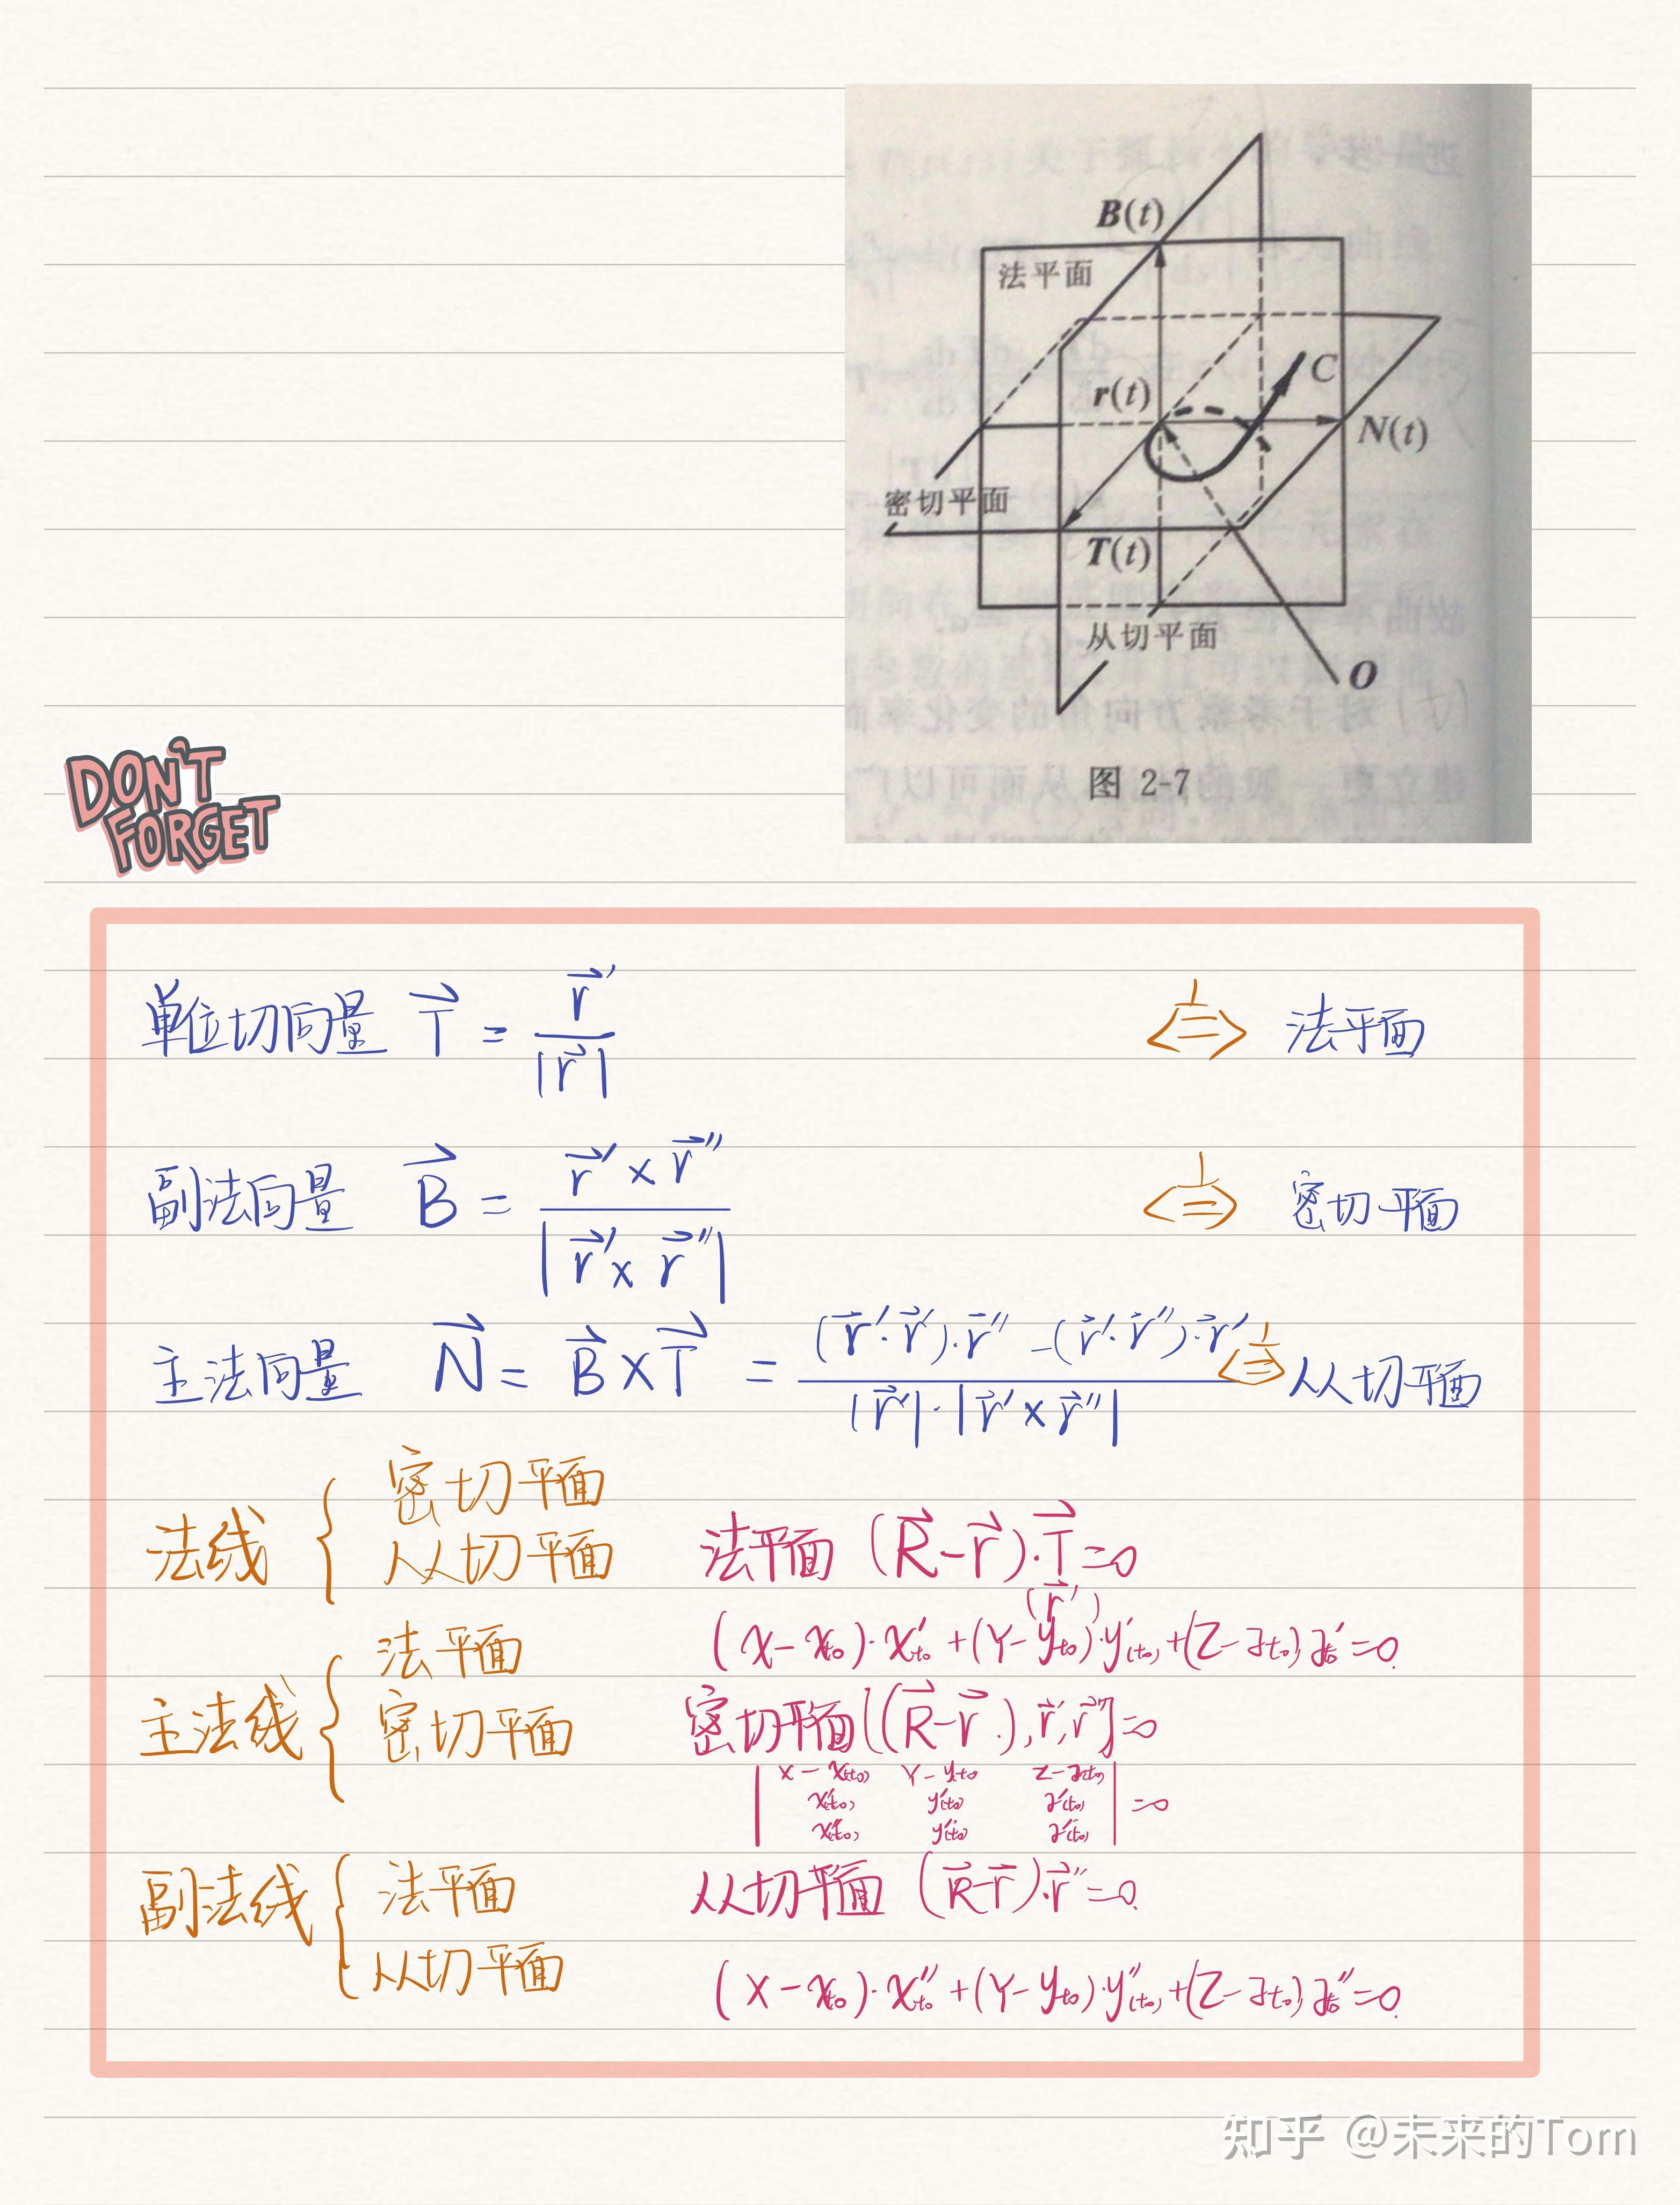 B(t)
法平面
r(t)
C
N(t)
密切平面
T(t)
从切平面
O
图 2-7
DON'T
FORGET
单位切向量 T⃗ = r⃗′ / |r⃗′| ⊥⇔ 法平面
副法向量 B⃗ = r⃗′ × r⃗″ / |r⃗′ × r⃗″| ⊥⇔ 密切平面
主法向量 N⃗ = B⃗ × T⃗ = (r⃗′·r⃗′)·r⃗″ − (r⃗′·r⃗″)·r⃗′ / |r⃗′|·|r⃗′ × r⃗″| ⊥⇔ 从切平面
法线 { 密切平面
从切平面
法平面 (R⃗−r⃗)·T⃗=0
(r⃗′)
(X−x(t₀))·x′(t₀)+(Y−y(t₀))·y′(t₀)+(Z−z(t₀))z′(t₀)=0
主法线 { 法平面
密切平面
密切平面 [(R⃗−r⃗),r⃗′,r⃗″]=0
| X−x(t₀) Y−y(t₀) Z−z(t₀) |
| x′(t₀) y′(t₀) z′(t₀) | =0
| x″(t₀) y″(t₀) z″(t₀) |
副法线 { 法平面
从切平面
从切平面 (R⃗−r⃗)·r⃗″=0
(X−x(t₀))·x″(t₀)+(Y−y(t₀))·y″(t₀)+(Z−z(t₀))z″(t₀)=0
知乎 @未来的Tom